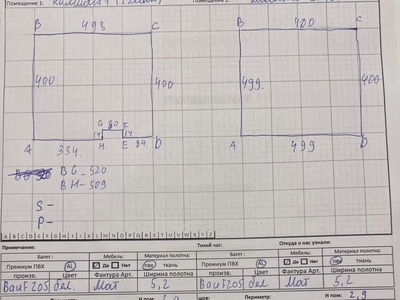 Помещение 1:
B 498 C
B 400 C
400
400
499.
400
G 80 F
14 14
A 334. H. E 84. D
A 499 D
BG - 520
BH - 509
S -
P -
A B C D E F G H I J K L M N O P Q R S T U V W X Y Z
Примечание: Тихий час: Откуда о нас узнали:
Багет : Мебель: Материал полотна: Багет : Мебель: Материал полотна:
Премиум ПВХ AL Да Нет пвх ткань Премиум ПВХ AL Да Нет пвх ткань
произв. Цвет Фактура Арт. Ширина полотна произв. Цвет Фактура Арт. Ширина полотна
BauF205 бел. Мат 5,2 BauF205 бел Мат 5,2
Периметр:
2,9